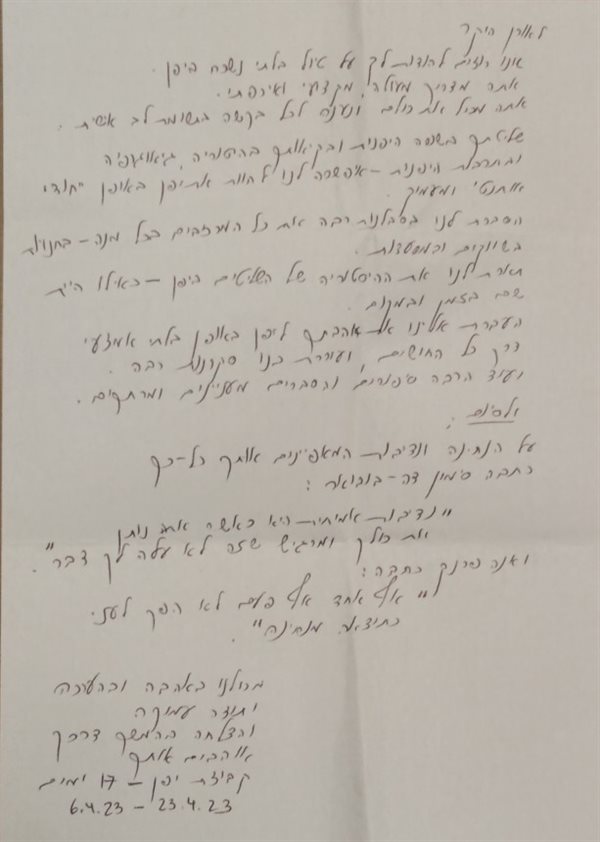 לאורן היקר
אנו רוצים להודות לך על טיול בלתי נשכח ביפן.
אתה מדריך מעולה, מקצועי ואיכפתי.
אתה מכיל את כולם ונענה לכל בקשה בתשומת לב אישית.
שליטתך בשפה היפנית ובקיאותך בהיסטוריה, גיאוגרפיה
ובתרבות היפנית – איפשרה לנו לחוות את יפן באופן יחודי
אותנטי ומעמיק.
הסברת לנו בסבלנות רבה את כל המרכיבים בכל מנה – בחנויות
בשווקים ובמסעדות.
תארת לנו את ההיסטוריה של השליטים ביפן – כאילו היית
שם בזמן ובמקום.
העברת אלינו את אהבתך ליפן באופן בלתי אמצעי
דרך כל החושים, ועוררת בנו סקרנות רבה.
ועוד הרבה סיפורים והסברים מעניינים ומרתקים.
לסיום:
על הנתינה ונדיבות המאפיינים אותך כל-כך
כתבה סימון דה-בובואר:
"נדיבות אמיתית היא כאשר אתה נותן
את כולך ומרגיש שזה לא עלה לך דבר".
ואנה פרנק כתבה:
"אף אחד אף פעם לא הפך לעני
כתוצאה מנתינה".
מכולנו באהבה ובהערכה
ותודה עמוקה
והצלחה בהמשך דרכך
אוהבים אותך
קבוצת יפן – 17 ימים
6.4.23 – 23.4.23